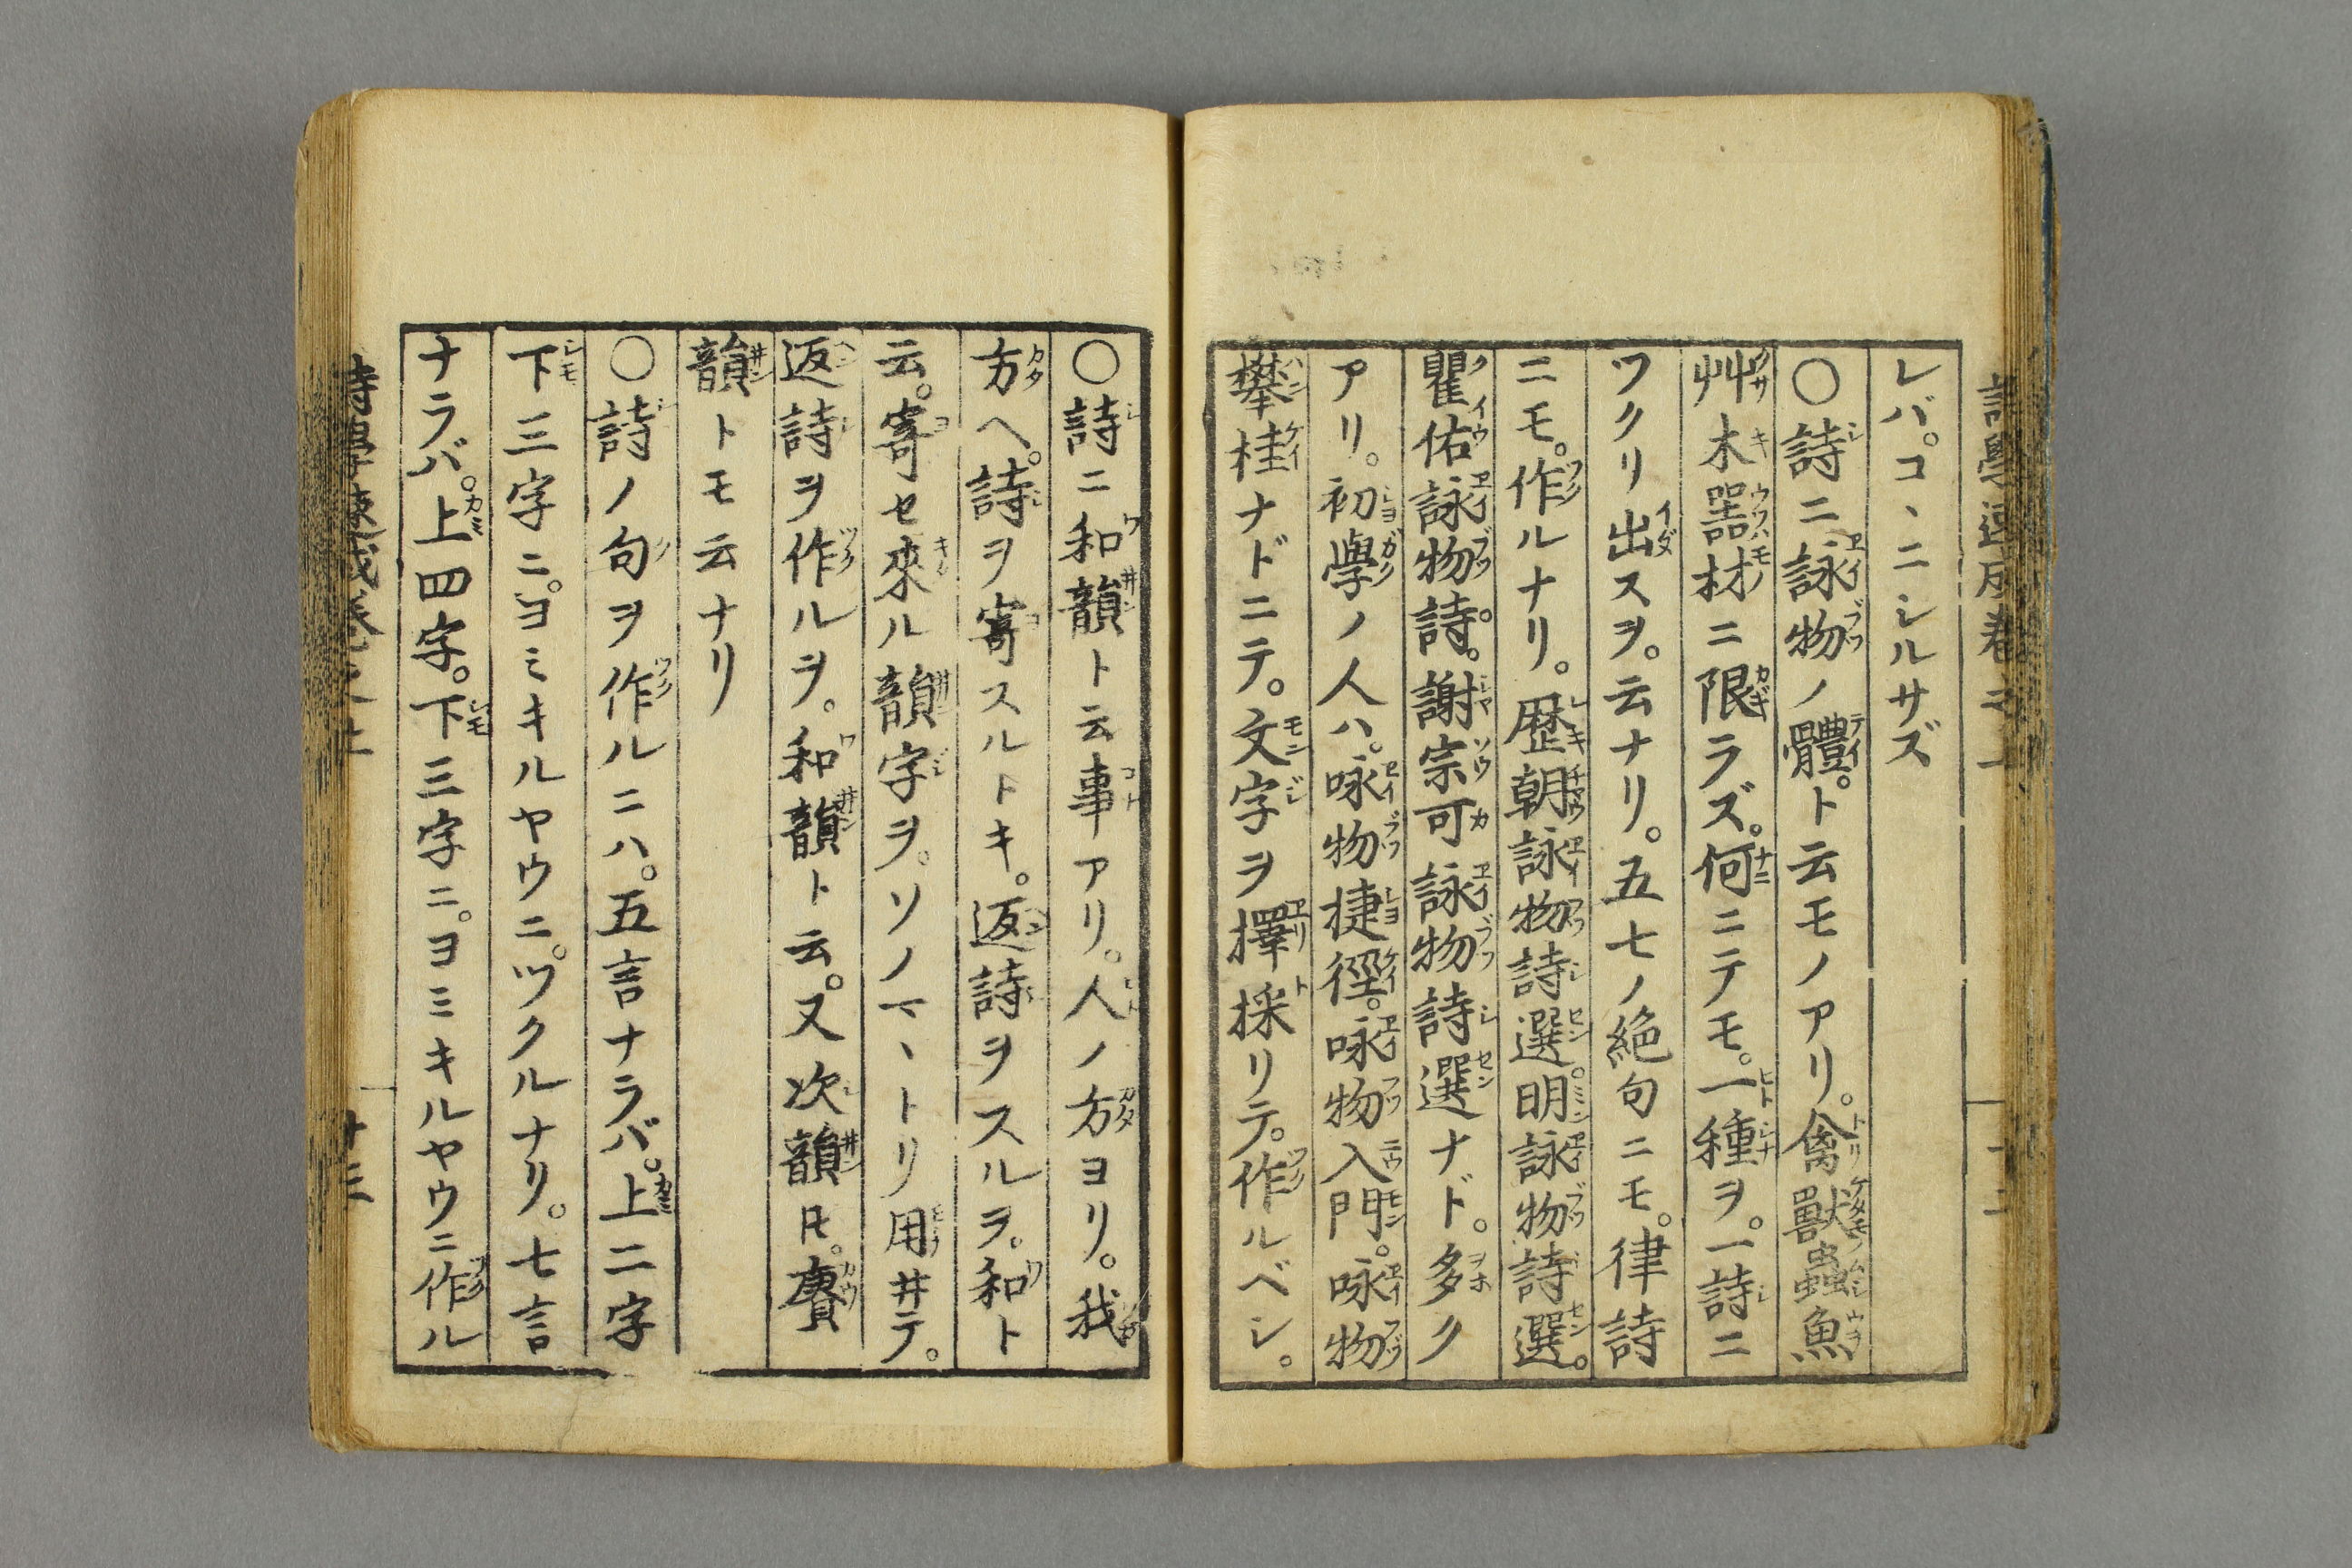 レバ。コヽニシルサズ
〇詩ニ詠物ノ體。ト云モノアリ。禽獸蟲魚
艸木噐材ニ限ラズ。何ニテモ。一種ヲ。一詩ニ
ツクリ出スヲ。云ナリ。五七ノ絶句ニモ。律詩
ニモ。作ルナリ。歴朝詠物詩選。明詠物詩選。
瞿佑詠物詩。謝宗可詠物詩選ナド。多ク
アリ。初學ノ人ハ。咏物捷徑。咏物入門。咏物
攀桂ナドニテ。文字ヲ擇採リテ。作ルベシ。
〇詩ニ和韻ト云事アリ。人ノ方ヨリ。我
方ヘ。詩ヲ寄スルトキ。返詩ヲスルヲ。和ト
云。寄セ來ル韻字ヲ。ソノマヽトリ用井テ。
返詩ヲ作ルヲ。和韻ト云。又次韻ﾄﾓ。賡
韻トモ云ナリ
〇詩ノ句ヲ作ルニハ。五言ナラバ。上二字
下三字ニ。ヨミキルヤウニ。ツクルナリ。七言
ナラバ。上四字。下三字ニ。ヨミキルヤウニ作ル
十三